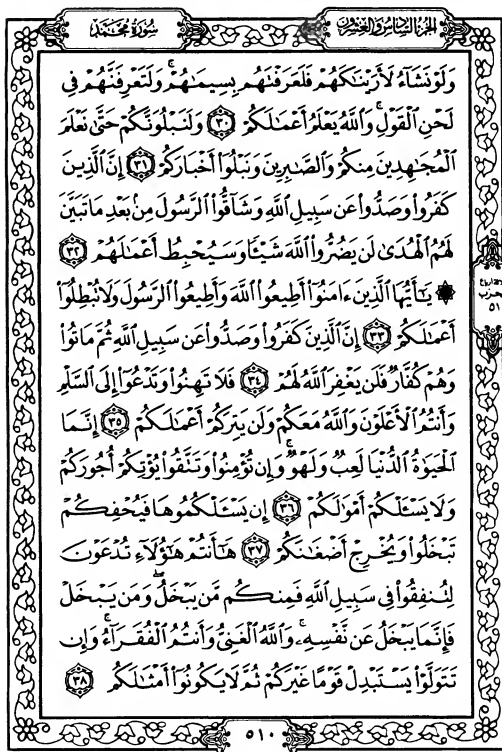 سُورَةُ مُحَمَّد
الجُزءُ السَّادِسُ وَالعِشرُونَ
وَلَوْ نَشَآءُ لَأَرَيْنَٰكَهُمْ فَلَعَرَفْتَهُم بِسِيمَٰهُمْ ۚ وَلَتَعْرِفَنَّهُمْ فِى
لَحْنِ ٱلْقَوْلِ ۚ وَٱللَّهُ يَعْلَمُ أَعْمَٰلَكُمْ ٣٠ وَلَنَبْلُوَنَّكُمْ حَتَّىٰ نَعْلَمَ
ٱلْمُجَٰهِدِينَ مِنكُمْ وَٱلصَّٰبِرِينَ وَنَبْلُوَا۟ أَخْبَارَكُمْ ٣١ إِنَّ ٱلَّذِينَ
كَفَرُوا۟ وَصَدُّوا۟ عَن سَبِيلِ ٱللَّهِ وَشَآقُّوا۟ ٱلرَّسُولَ مِنۢ بَعْدِ مَا تَبَيَّنَ
لَهُمُ ٱلْهُدَىٰ لَن يَضُرُّوا۟ ٱللَّهَ شَيْـًٔا وَسَيُحْبِطُ أَعْمَٰلَهُمْ ٣٢
۞ يَٰٓأَيُّهَا ٱلَّذِينَ ءَامَنُوٓا۟ أَطِيعُوا۟ ٱللَّهَ وَأَطِيعُوا۟ ٱلرَّسُولَ وَلَا تُبْطِلُوٓا۟
أَعْمَٰلَكُمْ ٣٣ إِنَّ ٱلَّذِينَ كَفَرُوا۟ وَصَدُّوا۟ عَن سَبِيلِ ٱللَّهِ ثُمَّ مَاتُوا۟
وَهُمْ كُفَّارٌ فَلَن يَغْفِرَ ٱللَّهُ لَهُمْ ٣٤ فَلَا تَهِنُوا۟ وَتَدْعُوٓا۟ إِلَى ٱلسَّلْمِ
وَأَنتُمُ ٱلْأَعْلَوْنَ وَٱللَّهُ مَعَكُمْ وَلَن يَتِرَكُمْ أَعْمَٰلَكُمْ ٣٥ إِنَّمَا
ٱلْحَيَوٰةُ ٱلدُّنْيَا لَعِبٌ وَلَهْوٌ ۚ وَإِن تُؤْمِنُوا۟ وَتَتَّقُوا۟ يُؤْتِكُمْ أُجُورَكُمْ
وَلَا يَسْـَٔلْكُمْ أَمْوَٰلَكُمْ ٣٦ إِن يَسْـَٔلْكُمُوهَا فَيُحْفِكُمْ
تَبْخَلُوا۟ وَيُخْرِجْ أَضْغَٰنَكُمْ ٣٧ هَٰٓأَنتُمْ هَٰٓؤُلَآءِ تُدْعَوْنَ
لِتُنفِقُوا۟ فِى سَبِيلِ ٱللَّهِ فَمِنكُم مَّن يَبْخَلُ ۖ وَمَن يَبْخَلْ
فَإِنَّمَا يَبْخَلُ عَن نَّفْسِهِۦ ۚ وَٱللَّهُ ٱلْغَنِىُّ وَأَنتُمُ ٱلْفُقَرَآءُ ۚ وَإِن
تَتَوَلَّوْا۟ يَسْتَبْدِلْ قَوْمًا غَيْرَكُمْ ثُمَّ لَا يَكُونُوٓا۟ أَمْثَٰلَكُم ٣٨
٥١
٥١٠